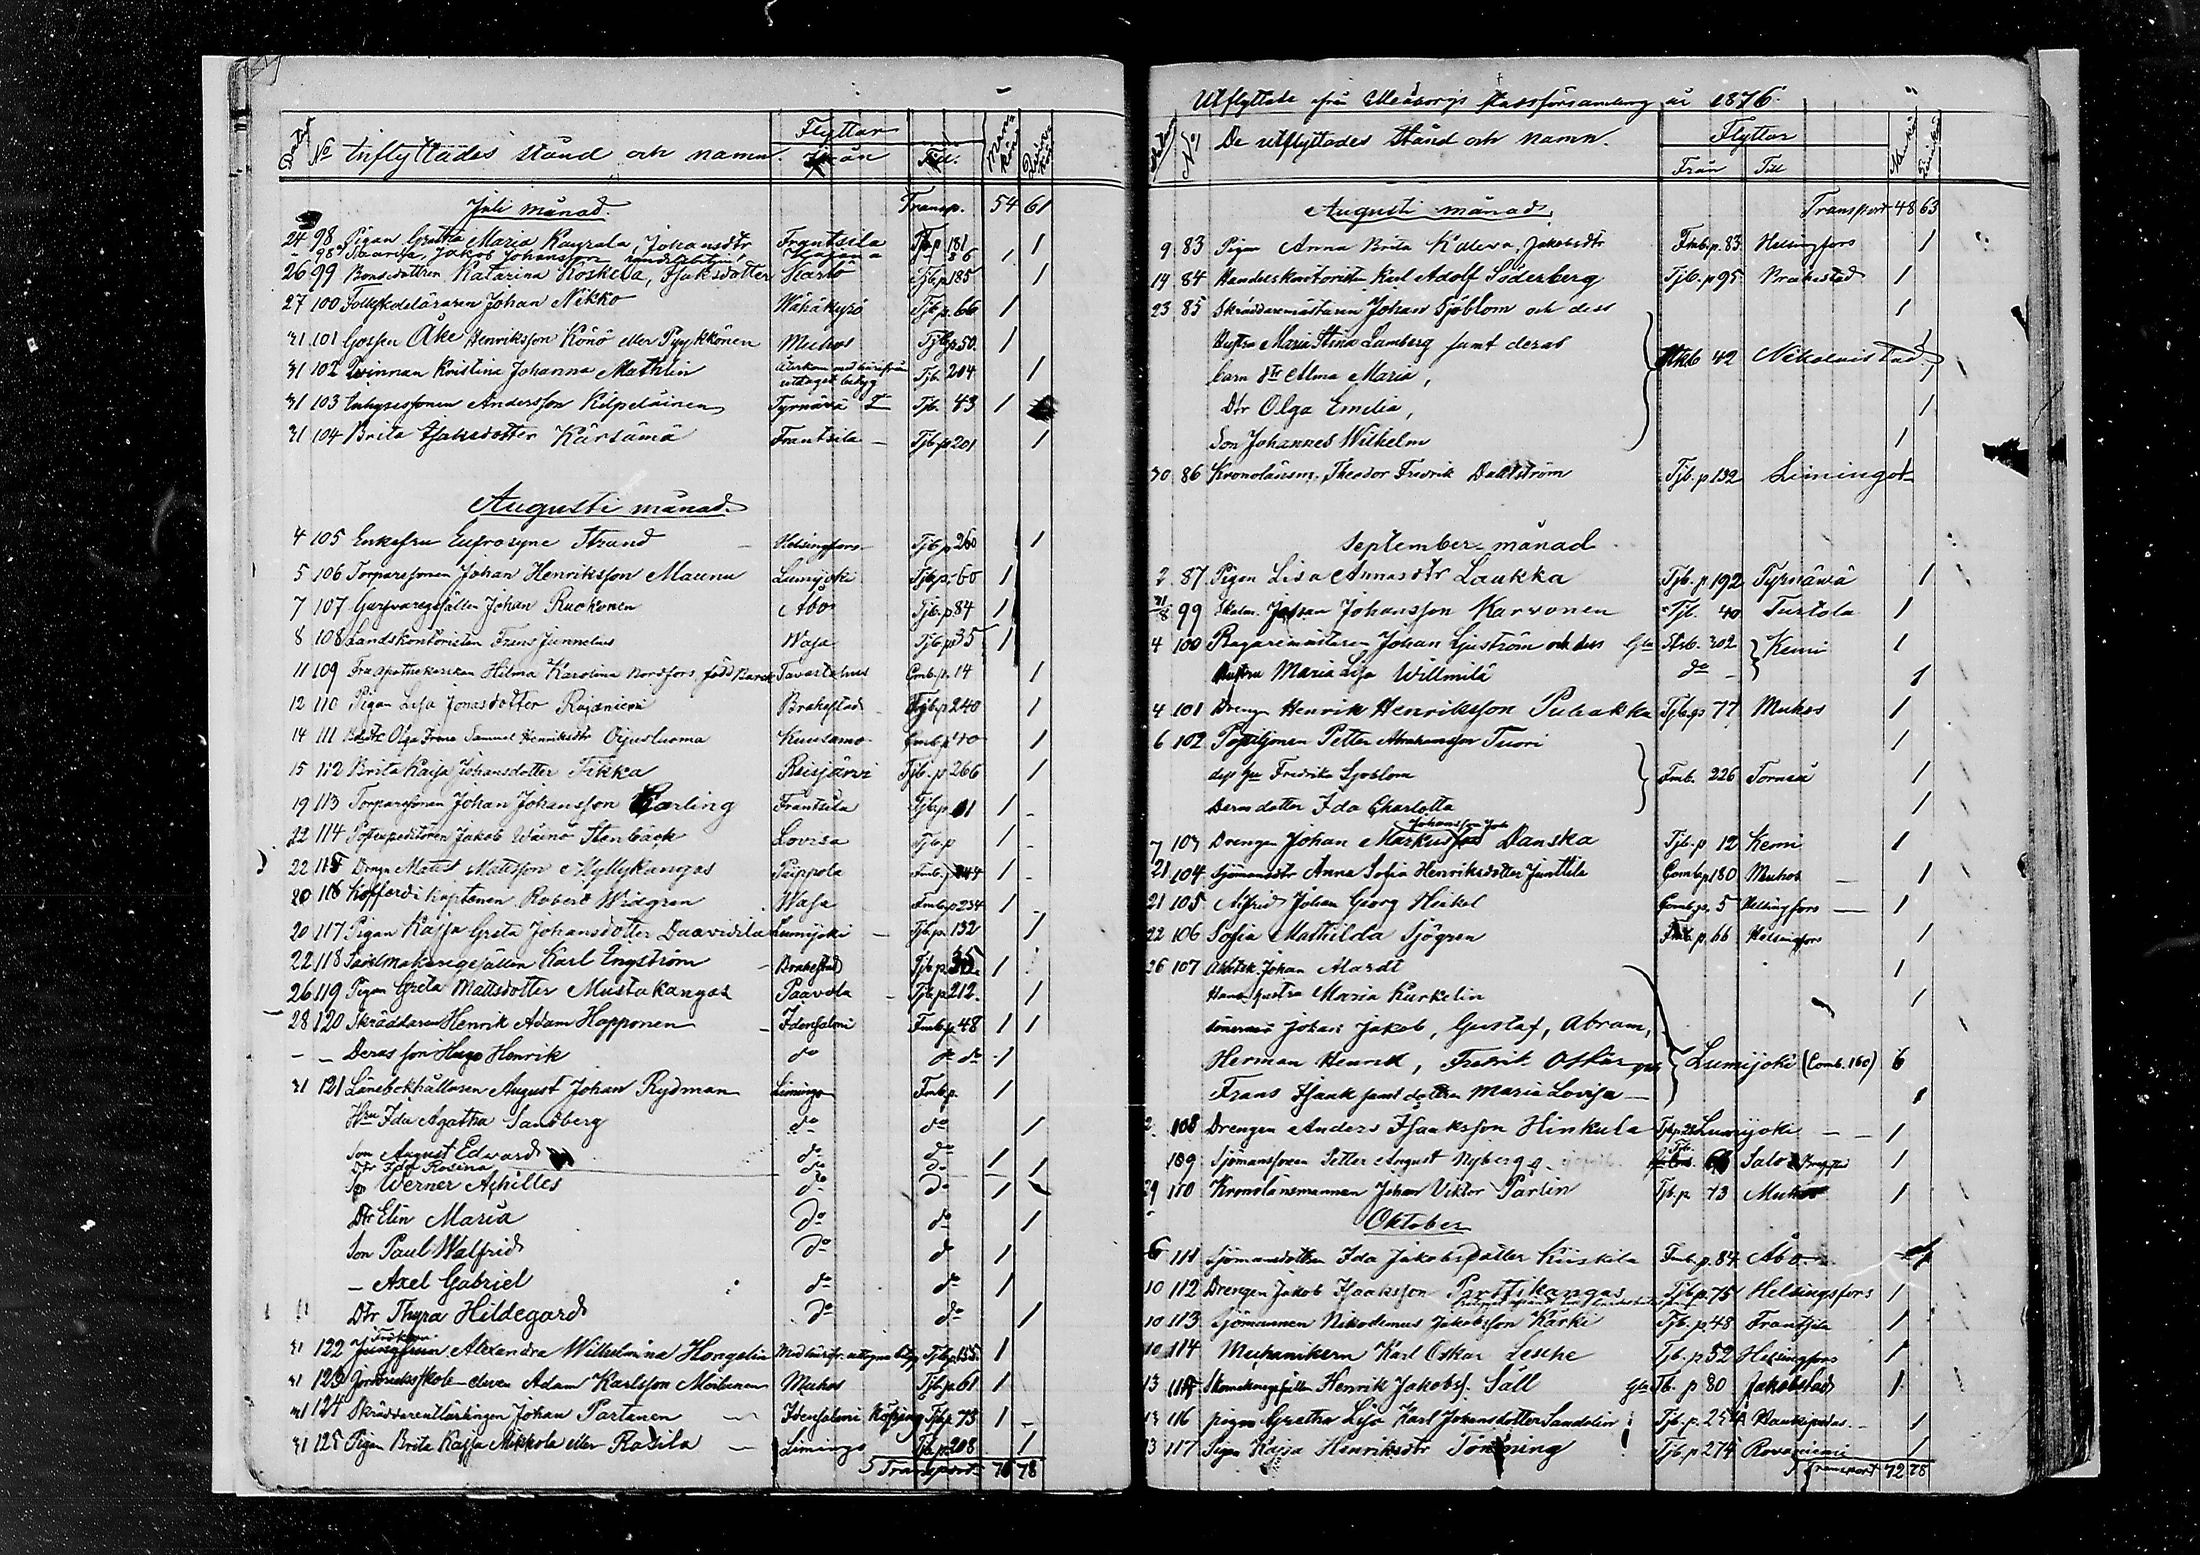 Dato No Inflyttades stånd och namn. Flyttar Från Till Mankön Qvinkön
Juli månad. Transp. 54 61
24 98 Pigan Gretha Maria Kangrala, Johansdtr Frantsila Tjb p 181 1
" 98½ Jakob Johansson 56 1
26 99 Bondedottren Katarina Koskela, Isaksdotter Karlö Tjb p 185 1
27 100 Folkskoleläraren Johan Nikko Wähäkyrö Tjb p. 66 1
31 101 Gossen Åke Henriksson Könö eller Pyykkönen Muhos Tjb p 50. 1
31 102 Qvinnan Kristina Johanna Mathlin Tjb. 204 1
31 103 Inhysessonen Andersson Kilpeläinen Tyrnävä Tjb. 43 1
31 104 Brita Isaksdotter Kärsämä Frantsila – Tjb p 201 1
Augusti månad.
4 105 Enkefru Eufrosyne Strand – Helsingfors Tjb p 260 1
5 106 Torparesonen Johan Henriksson Maunu Lumijoki Tjb p. 60 1
7 107 Garfvaregesällen Johan Ruokonen Åbo Tjb. p 84 1
8 108 Landskontoristen Frans Junnelius Wasa Tjb p 35 1
11 109 Fru Apothekerskan Hilma Karolina Nordfors född Barck Tavastehus Cmb. p. 14 1
12 110 Pigan Lisa Jonasdotter Rajaniemi Brahestad Tjb p 240 1
14 111 Olga Frans Samuel Henriksdtr Oijusluoma Kuusamo 1
15 112 Brita Kaisa Johansdotter Tikka Reisjärvi Tjb. p 266 1
19 113 Torparesonen Johan Johansson Karling Frantsila Tjb p 1 –
22 114 Postexpeditören Jakob Wäinö Stenbäck Lovisa Tjb. p 1 –
22 115 Dräng Matts Mattsson Myllykangas Piippola Fmb. 1 –
20 116 Kofferdi kaptenen Robert Widgren Wasa Fmb. p 234 1 –
20 117 Pigan Kajsa Greta Johansdotter Daavidila Lumijoki – Tjb. p. 132 1
22 118 Sadelmakaregesällen Karl Engström – Brahestad Tjb p. 35 1
26 119 Pigan Greta Mattsdotter Mustakangas Paavola – Tjb p 212. 1
28 120 Skräddaren Henrik Adam Happonen – Idensalmi Fmb. p 48 1 1
– – Deras son Hugo Henrik do do do 1
31 121 Länebokhållaren August Johan Rydman Limingo Fmb. p. 1
Hru Ida Agatha Sandberg do do 1
Son August Edward do do 1
Dtr Ida Rosina do do 1
Son Werner Achilles do do 1
Dtr Elin Maria do do 1
Son Paul Walfrid do do 1
– Axel Gabriel do do 1
Dtr Thyra Hildegard do do 1
Fröken
31 122 Jungfrun Alexandra Wilhelmina Hongelin Tjb p 155. 1
31 123 Jordbruksskole-eleven Adam Karlsson Moilanen Muhos Tjb. p 61 1
31 124 Skräddarentlärlingen Johan Partanen Idensalmi Köping Tjb p 73 1 –
31 125 Pigan Brita Kajsa Mikkola eller Rasila – Limingo Tjb. p. 208 1
Transport 78
Utflyttade från Uleåborgs Stadsförsamling år 1876.
Datum No De utflyttades Stånd och namn. Flyttar Från Till Mankön Qvinkön
Augusti månad Transport 48 63
9 83 Pigan Anna Brita Kaleva, Jakobsdtr Fmb. p. 83 Helsingfors 1
14 84 Handelskontoristen Karl Adolf Söderberg Tjb. p 95 Brahestad 1
23 85 Skräddaremästaren Johan Sjöblom och dess 1
Hustru Maria Stina Lamberg samt deras 42 Nikolaistad
barn dtr Alma Maria, 1
Dtr Olga Emilia, 1
Son Johannes Wilhelm 1
30 86 Kronolänsm. Theodor Fredrik Dahlström Tjb. p 132 Limingo 1
September månad
2 87 Pigan Lisa Annasdtr Laukka Tjb. p 192 Tyrnävä 1
31/8 99 Johan Johansson Karvonen Tjb. 40 Turtola 1
4 100 Bagaremästaren Johan Ljuström och dess Gla Stsb. 302 Kemi 1
Hustru Maria Lisa Willmilä do – 1
4 101 Drengen Henrik Henriksson Puhakka Tjb. p 77 Muhos 1
6 102 Postiljonen Petter Abrahamsson Tuori 1
dess hu Fredrika Sjöblom Fmb. 226 Torneå 1
Deras dotter Ida Charlotta 1
7 103 Drengen Johan Markusson Danska Tjb. p 12 Kemi 1
21 104 Sjömansdtr Anna Sofia Henriksdotter Junttila Comb p 180 Muhos – 1
21 105 Alfrid Johan Georg Hickel Comb p. 5 Helsingfors – 1
22 106 Sofia Mathilda Sjögren p. 66 Helsingfors 1
26 107 Johan Alardt 1
Hans hustru Maria Kurkelin 1
sönerna Johan Jakob, Gustaf, Abram,
Herman Henrik, Fredrik Oskar och Lumijoki (Comb. 160) 6
Frans Isaak samt dottren Maria Lovisa – 1
2. 108 Drengen Anders Isaaksson Hinkula Lumijoki – – 1
109 Sjömanssonen Petter August Nyberg Salo 1
29 110 Kronolänsmannen Johan Viktor Parlin Tjb. p 73 Muhos 1
Oktober
6 111 Sjömansdotter Ida Jakobsdotter Kiiskilä Fmb. p. 84 Åbo 1
10 112 Drengen Jakob Isaaksson Parttikangas Tjb p. 75 Helsingsfors 1
10 113 Sjömannen Nikodemus Jakobsson Karki Tjb. p. 48 Frantsila 1
10 114 Mechanikern Karl Oskar Lesche Tjb. p 52 Helsingfors 1
13 115 Skomakaregesällen Henrik Jakobs. Säll Gla Tb. p 80 Jakobstad 1
13 116 pigan Gretha Lisa Karl Johansdotter Sandelin Tjb. p. 254 Haukipudas – 1
13 117 Pigan Kajsa Henriksdtr Tönning Tjb. p 274 Rovaniemi 1
Transport 72 78